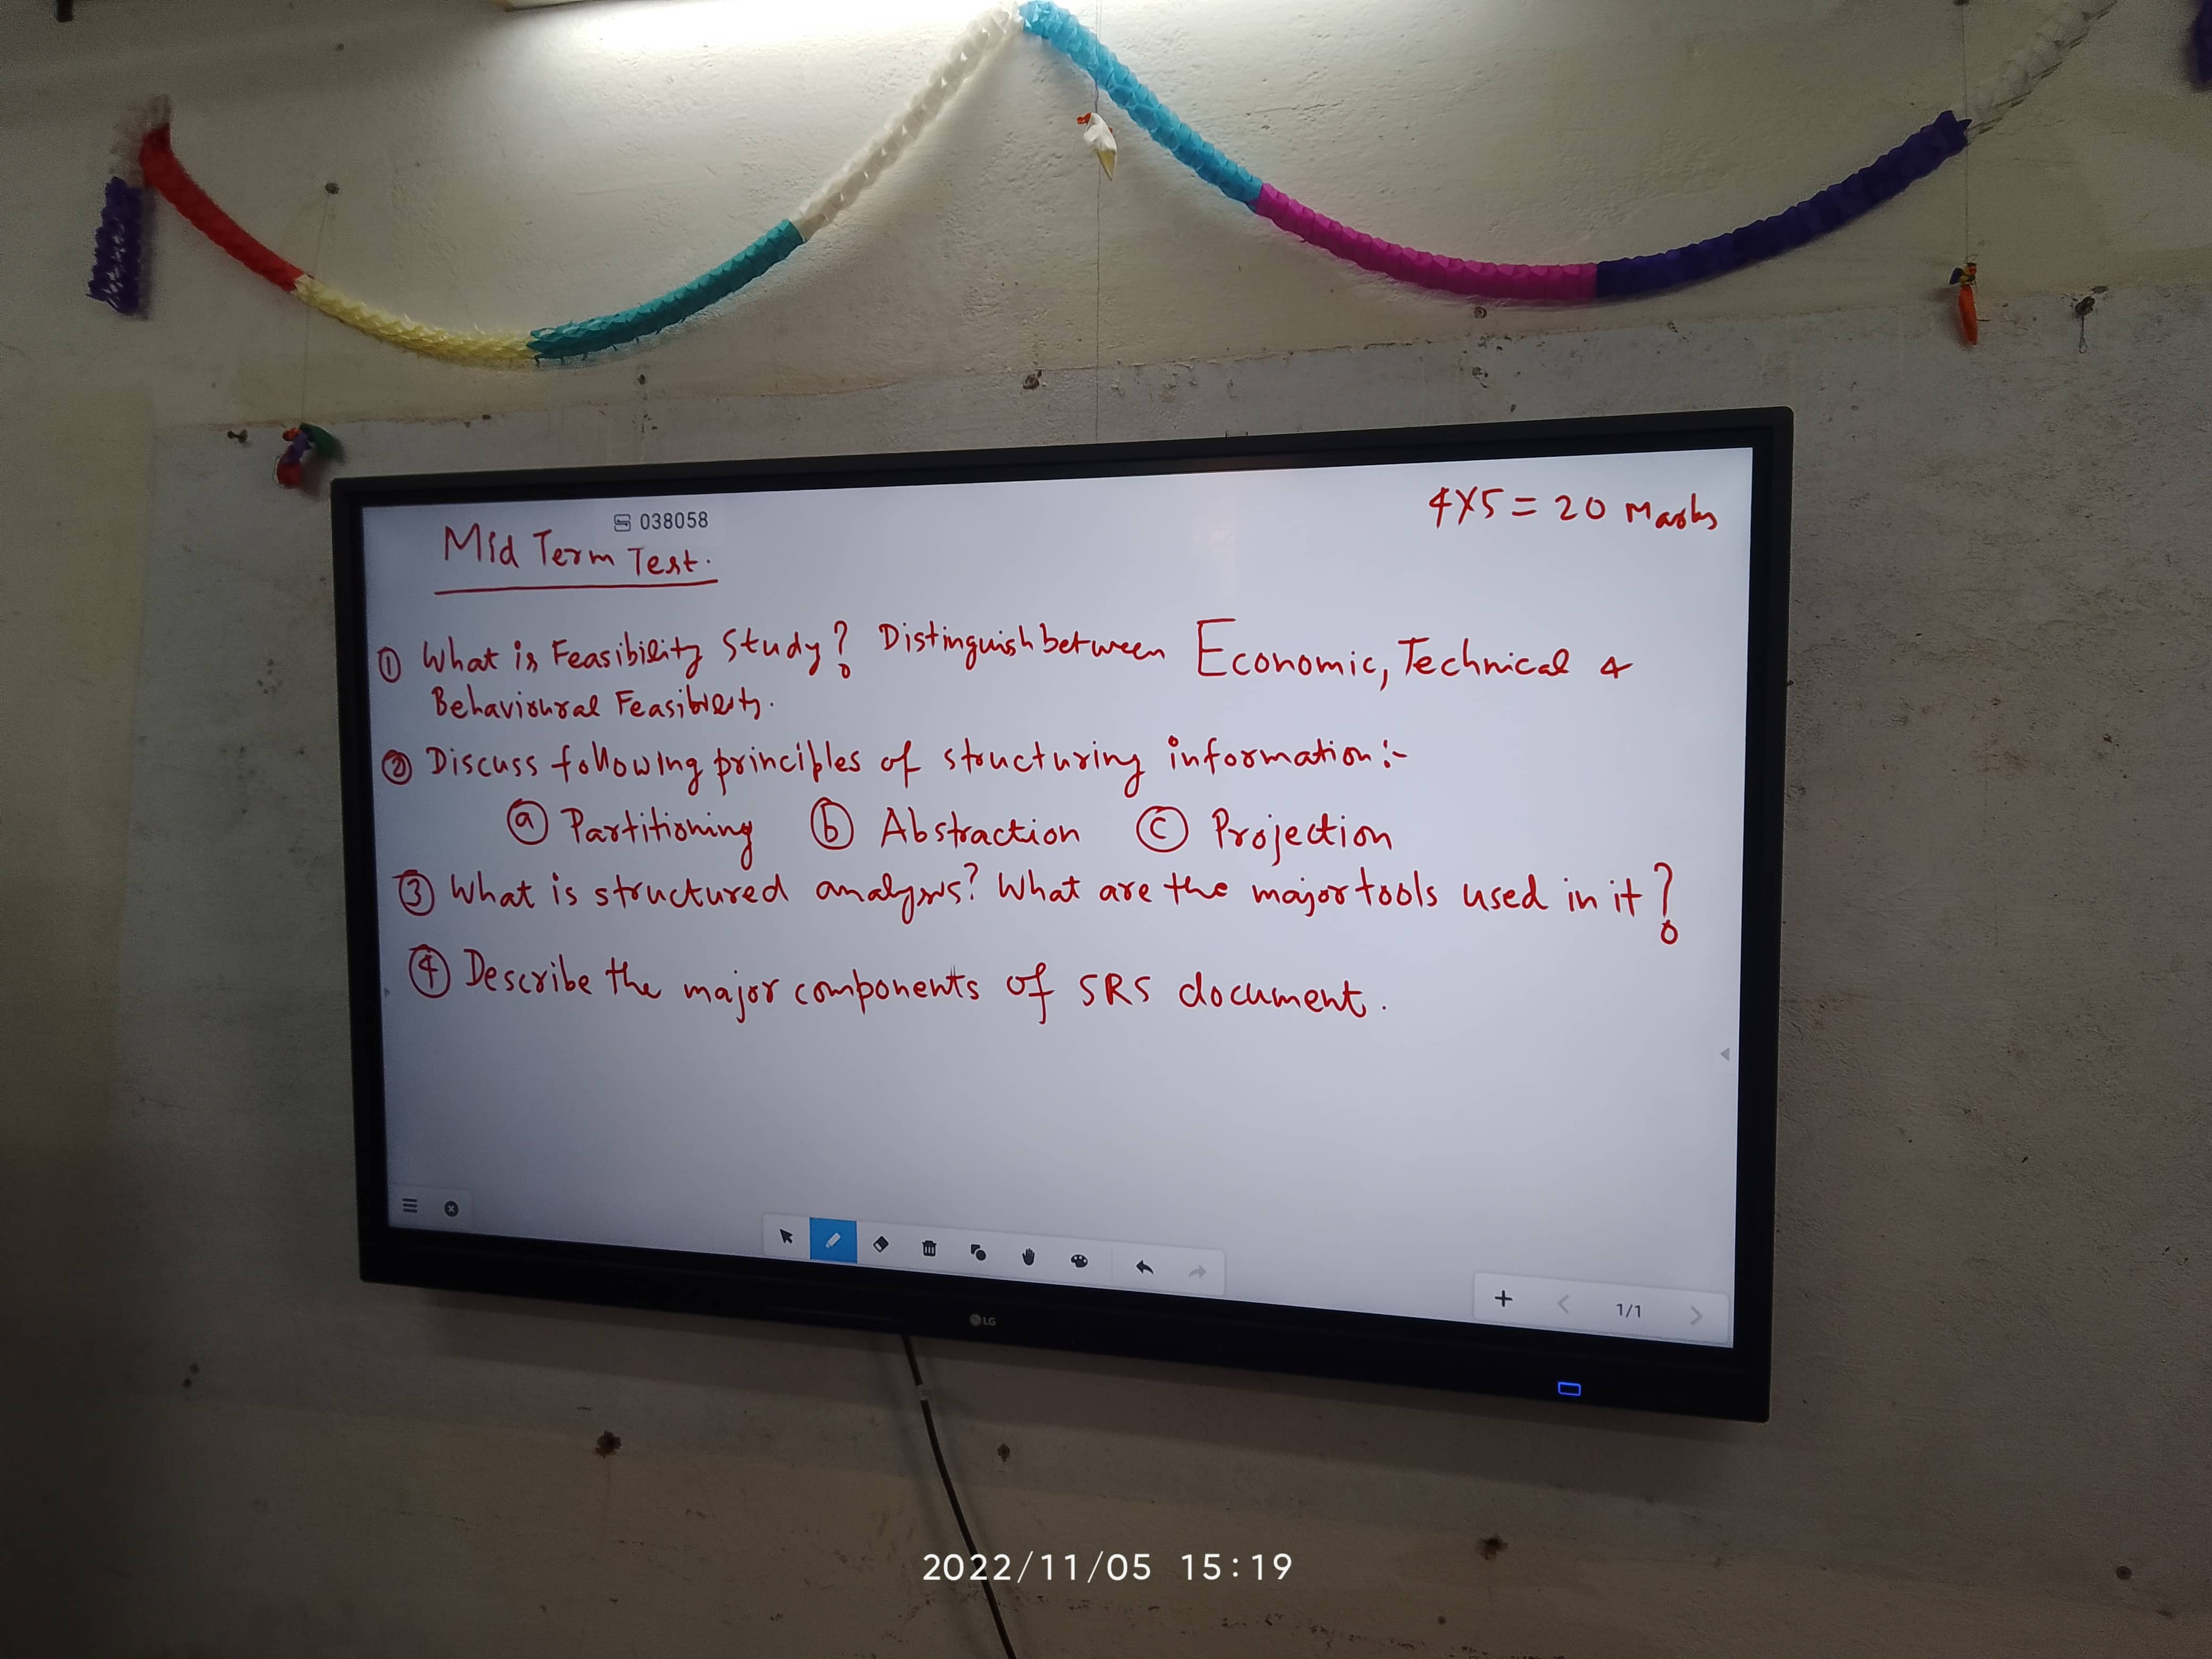 038058
4X5 = 20 Marks
Mid Term Test.
① What is Feasibility Study? Distinguish between Economic, Technical &
Behavioural Feasibility.
② Discuss following principles of structuring information:-
ⓐ Partitioning ⓑ Abstraction ⓒ Projection
③ What is structured analysis? What are the major tools used in it?
④ Describe the major components of SRS document.
1/1
LG
2022/11/05 15:19